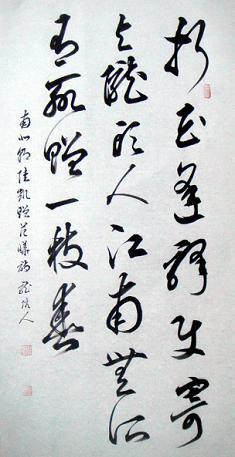 折花逢驛使寄
与隴頭人江南無所
有聊贈一枝春
南北朝陸凱贈范曄詩